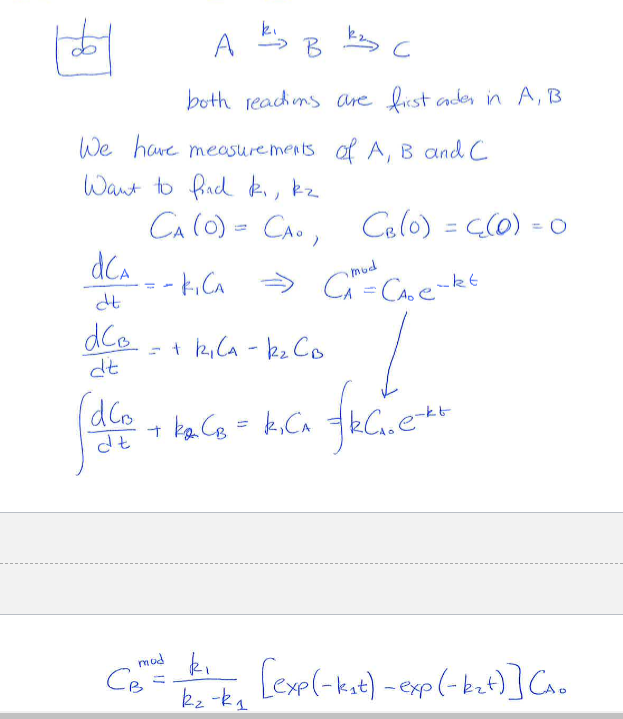 A →^{k₁} B →^{k₂} C
both reactions are first order in A, B
We have measurements of A, B and C
Want to find k₁, k₂
C_A(0) = C_{A₀}, C_B(0) = C_C(0) = 0
dC_A/dt = -k₁C_A ⇒ C_A^{mod} = C_{A₀}e^{-kt}
dC_B/dt = + k₁C_A - k₂C_B
∫ dC_B/dt + k₂C_B = k₁C_A = ∫kC_{A₀}e^{-kt}
C_B^{mod} = k₁/(k₂-k₁) [exp(-k₁t) - exp(-k₂t)] C_{A₀}